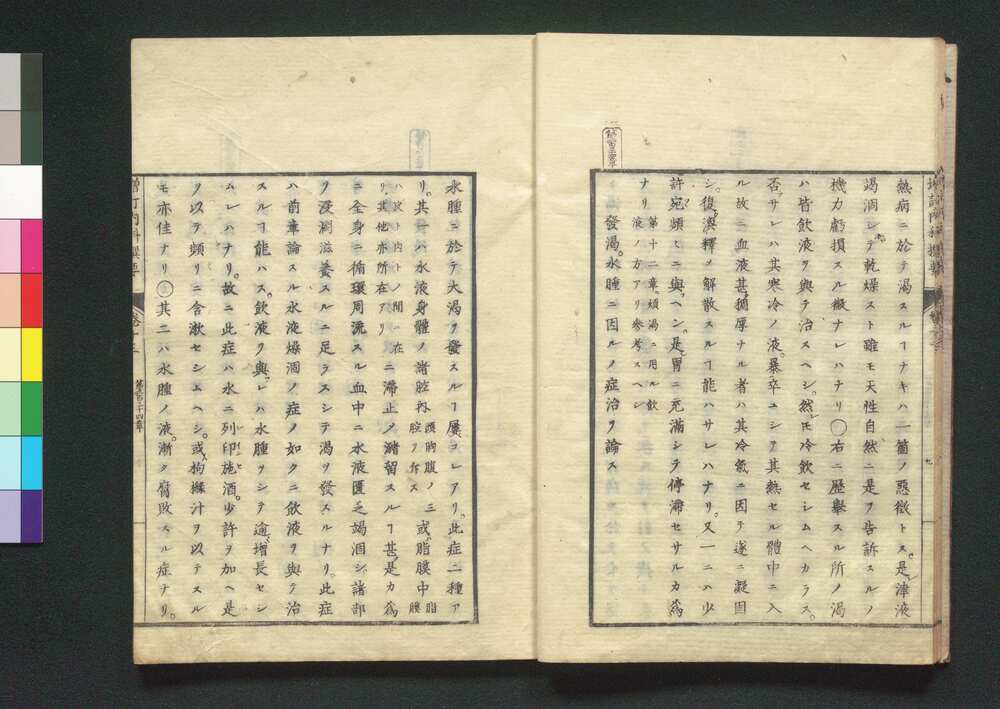 熱病ニ於テ渇スルヿナキハ一箇ノ惡徴トス。是レ津液
竭涸シテ乾燥スト雖モ天性自然ニ是ヲ告訴スルノ
機力虧損スル徴ナレハナリ○右ニ歴擧スル所ノ渇
ハ皆飲液ヲ與テ治スヘシ。然レ𪜈冷飲セシムヘカラス。
否サレハ其寒冷ノ液。暴卒ニシテ其熱セル體中ニ入
ル故ニ血液甚稠厚ナル者ハ其冷氣ニ因テ遂ニ凝固
シ。復タ潰釋メ解散スルヿ能ハサレハナリ。又一ニハ少
許宛頻ニ與フヘシ。是レ胃ニ充滿シテ停滯セサルカ爲
ナリ 第十二章煩渇ニ用ル飲
液ノ方アリ參考スヘシ
發渇。水腫ニ因ルノ症治ヲ論ス
水腫ニ於テ大渇ヲ發スルヿ屢コレアリ。此症二種ア
リ。其一ハ水液身體ノ諸腔内 頭胸腹ノ三
腔ヲ斥ス 或ハ脂膜中 脂膜
ハ皮ト肉トノ間ニ在
リ其他亦所在アリ ニ滯止メ瀦留スルヿ甚シ。是カ爲
ニ全身ニ循環周流スル血中ニ水液匱乏竭涸シ。諸部
ヲ浸潤滋養スルニ足ラスシテ渇ヲ發スルナリ。此症
ハ前章論スル水液燥涸ノ症ノ如クニ飲液ヲ與テ治
スルヿ能ハス。飲液ヲ與レハ水腫ヲシテ逾増長セシ
ムレハナリ。故ニ此症ハ水ニ列印施酒。少許ヲ加ヘ是
ヲ以テ頻リニ含漱セシムヘシ。或ハ拘櫞汁ヲ以テスル
モ亦佳ナリ○其二ハ水腫ノ液。漸ク腐敗スル症ナリ。